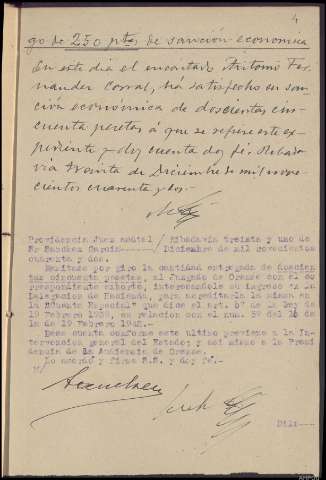 4
go de 250 ptas de sanción economica
En este dia el encartado Antonio Fer-
nandez Corral, há satisfecho en san-
ción económica de doscientas cin-
cuenta pesetas á que se refiere este ex-
pediente y doy cuenta doy fé. Ribada-
via treinta de Diciembre de mil nove-
cientos cuarenta y dos.-
Providencia Juez acctal / Ribadavia treinta y uno de
Sr Sanchez Garcia / Diciembre de mil novecientos
cuarenta y dos.
Remitase por giro la cantidad entregada de doscien
tas cincuenta pesetas, al Juzgado de Orense con el co
rrespondiente exhorto, interesandole su ingreso en la
Delegacion de Hacienda, para acreditarla la misma en
la Cuenta Especial que dice el art. 67 de la Ley de
19 Febrero 1939, en relacion con el num. 5º del 15 de
la de 19 Febrero 1942.-
Dese cuenta conforme este ultimo previene a la In-
tervencion general del Estado; y asi mismo a la Presi
dencia de la Audiencia de Orense.
Lo acordó y firma S.S. y doy fe.-
Dili